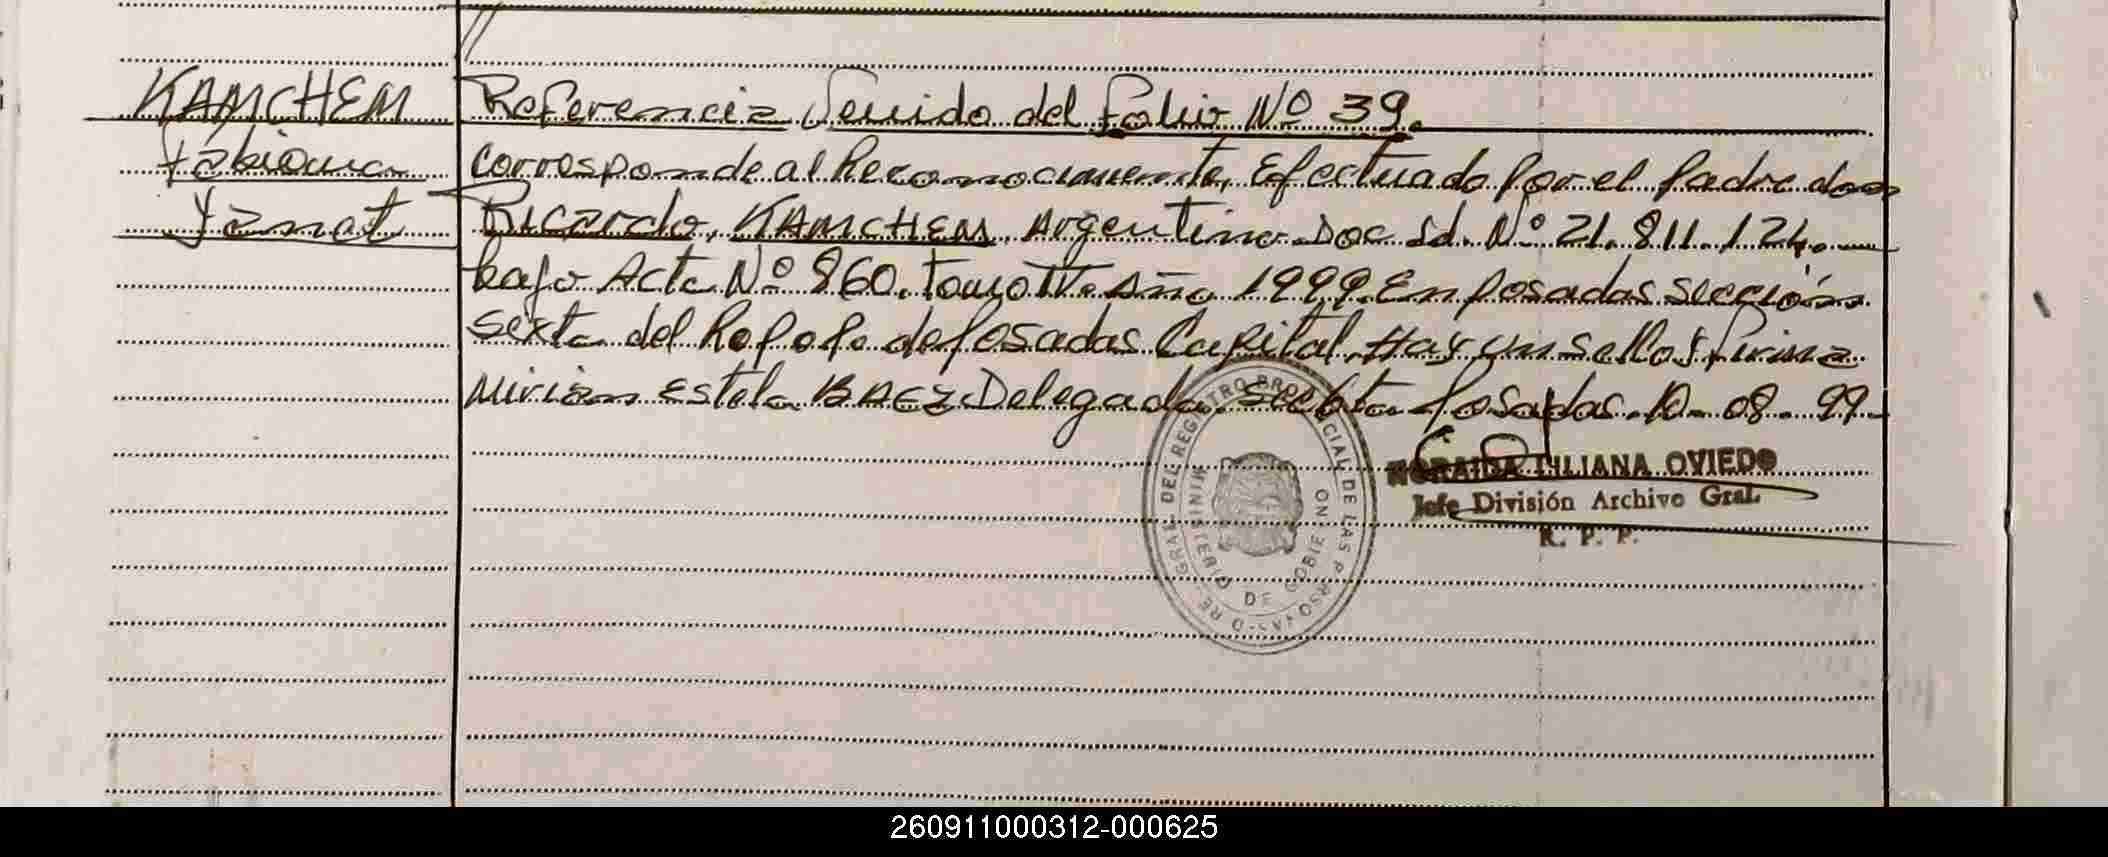 KAMCHEM
Fabiana
Yanet
Referencia Venido del folio Nº 39.
Corresponde al Reconocimiento, Efectuado por el padre don
Ricardo, KAMCHEM, Argentino Doc Id. Nº 21.811.124.
bajo Acta Nº 860. tomo IV. Año 1999. En posadas sección
sexta del de posadas Capital. Hay un sello y firma
Mirian Estela BAEZ Delegada. Sec 6ta Posadas. 10-08-99.
NORAIDA LILIANA OVIEDO
Jefe División Archivo Gral.
R. P. P.
GRAL. DEL REGISTRO PROVINCIAL DE LAS PERSONAS
MINISTERIO DE GOBIERNO
260911000312-000625